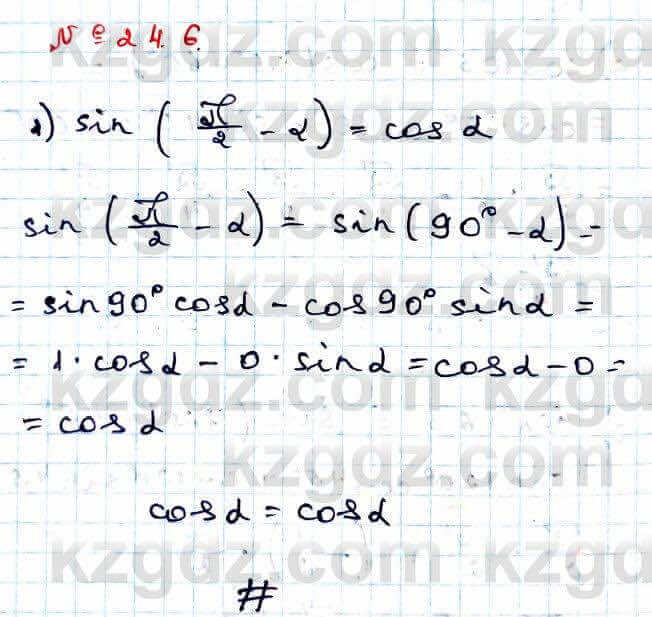 № 24.6.
1) sin (π/2 - α) = cos α
sin (π/2 - α) = sin (90° - α) -
= sin 90° cos α - cos 90° sin α =
= 1 · cos α - 0 · sin α = cos α - 0 =
= cos α
cos α = cos α
#
kzgdz.com